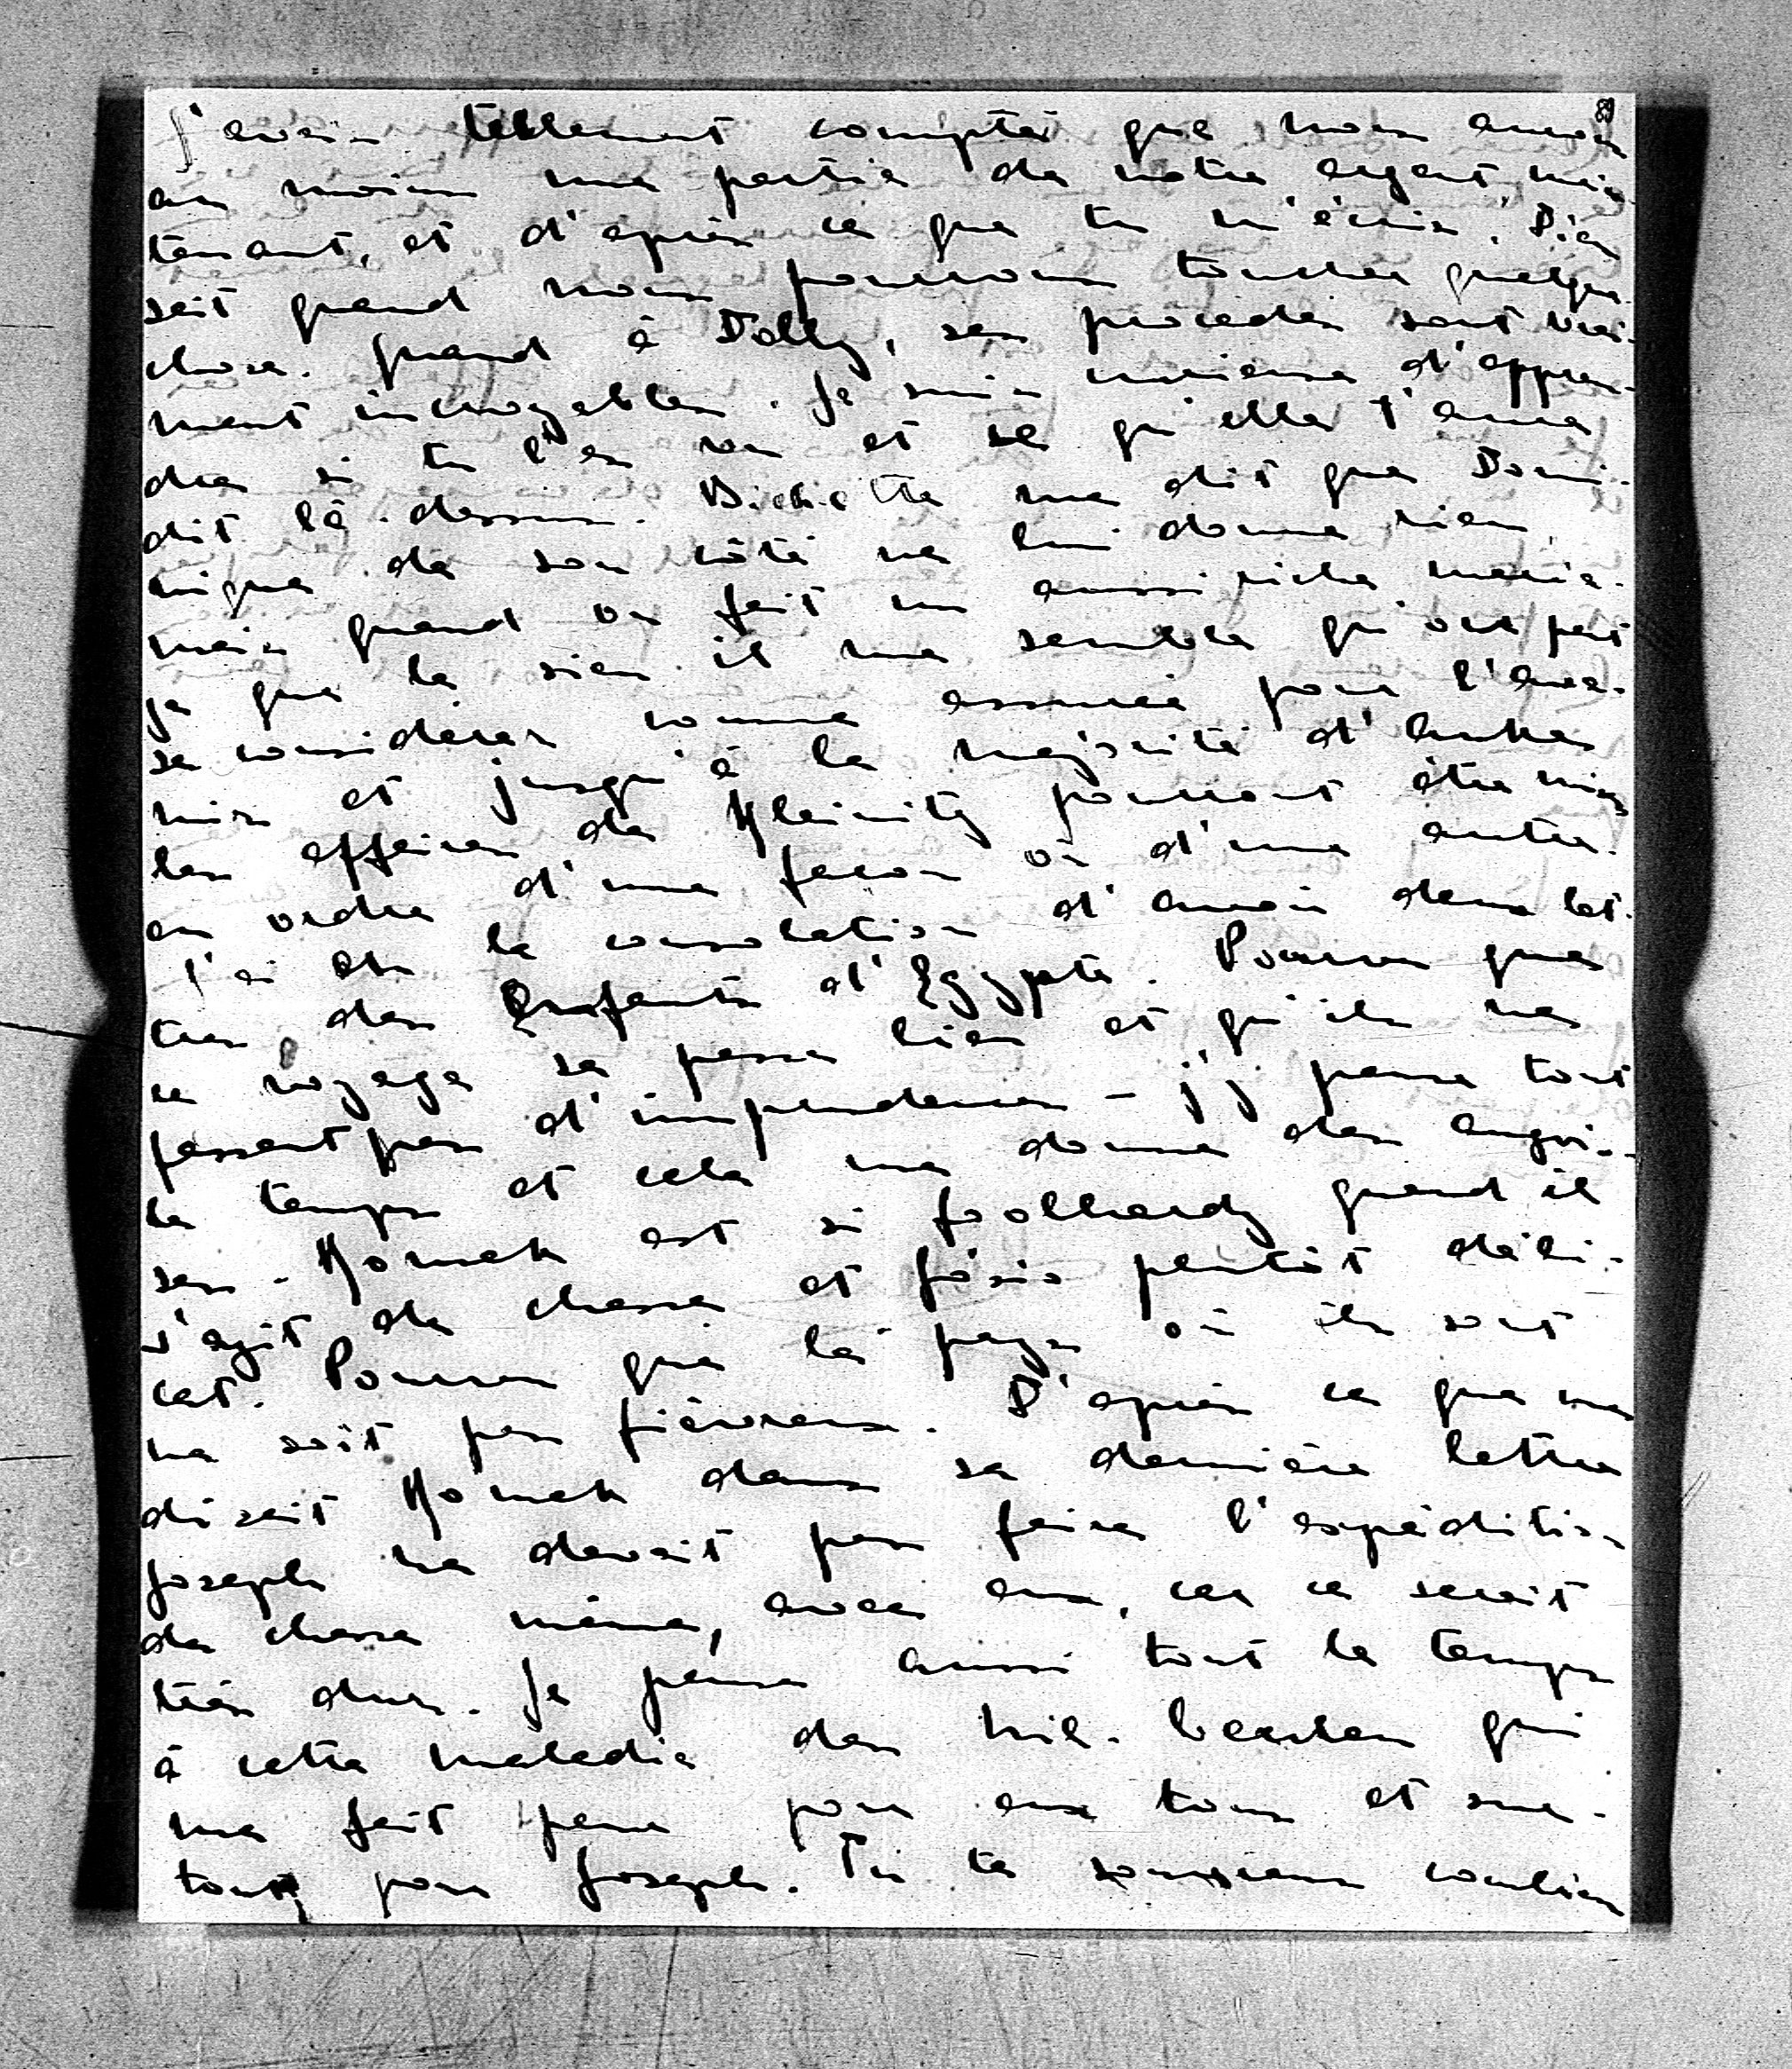 J'avais tellement compté que nous aurons
au moins une partie de notre argent main
tenant, et d'après ce que tu m'écris, Dieu
sait quand nous pourrons toucher quelque
chose. Quand à Dolly, ses procédés sont vrai-
ment incroyables. Je suis curieuse d'appren-
dre si tu l'as vu et ce qu'elle t'aura
dit là-dessus. Bichette me dit que Domi-
nique de son côté ne lui donne rien,
mais quand on fait un aussi riche maria-
ge que le sien il me semble qu'on peut
se considérer comme assurée pour l'ave-
nir et jusqu'à la majorité d'autres
les affaires de pourront être mises
en ordre d'une façon où d'une autre.
J'ai eu la consolation d'avoir deux let-
tres des Enfants d'Egypte. Pourvu que
ce voyage se passe bien et qu'ils ne
fassent pas d'imprudences – j'y pense tout
le temps et cela me donne des angois-
ses. est si foolhardy quand il
s'agit de chasse et Józio plutôt déli-
cat. Pourvu que le pays où ils sont
ne soit pas fiévreux. D'après ce que me
disait dans sa dernière lettre
Joseph ne devait pas faire l'expédition
de chasse même, avec eux, car ce serait
très dur. Je pense aussi tout le temps
à cette maladie des qui
me fait peur pour eux tous et sur-
tout pour Joseph. Tu te souviens combien